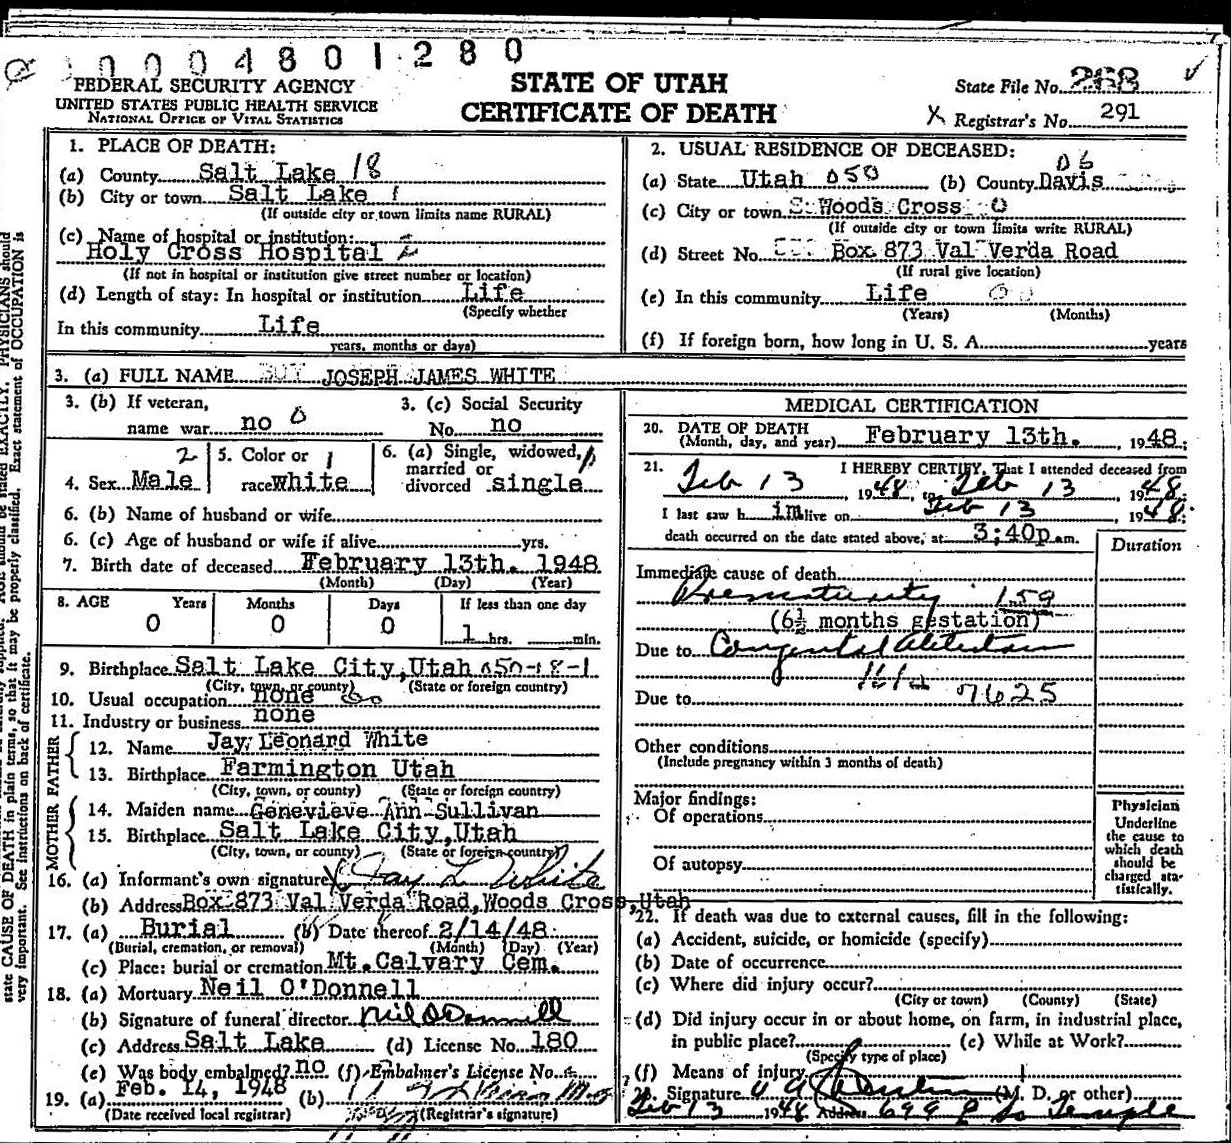 0004801280
FEDERAL SECURITY AGENCY
UNITED STATES PUBLIC HEALTH SERVICE
NATIONAL OFFICE OF VITAL STATISTICS
STATE OF UTAH
CERTIFICATE OF DEATH
State File No. 268
X Registrar's No. 291
1. PLACE OF DEATH:
(a) County Salt Lake 18
(b) City or town Salt Lake 1
(If outside city or town limits name RURAL)
(c) Name of hospital or institution:
Holy Cross Hospital
(If not in hospital or institution give street number or location)
(d) Length of stay: In hospital or institution Life
(Specify whether
In this community Life
years, months or days)
2. USUAL RESIDENCE OF DECEASED:
06
(a) State Utah 050 (b) County Davis
(c) City or town S. Woods Cross 0
(If outside city or town limits write RURAL)
(d) Street No. Box 873 Val Verda Road
(If rural give location)
(e) In this community Life
(Years) (Months)
(f) If foreign born, how long in U. S. A. years
3. (a) FULL NAME JOSEPH JAMES WHITE
3. (b) If veteran,
name war no 0
3. (c) Social Security
No. no
4. Sex Male 2
5. Color or 1
race white
6. (a) Single, widowed,
married or
divorced single
6. (b) Name of husband or wife
6. (c) Age of husband or wife if alive yrs.
7. Birth date of deceased February 13th. 1948
(Month) (Day) (Year)
8. AGE Years Months Days If less than one day
0 0 0 1 hrs. min.
9. Birthplace Salt Lake City, Utah 050-18-1
(City, town, or county) (State or foreign country)
10. Usual occupation none
11. Industry or business none
FATHER
12. Name Jay Leonard White
13. Birthplace Farmington Utah
(City, town, or county) (State or foreign country)
MOTHER
14. Maiden name Genevieve Ann Sullivan
15. Birthplace Salt Lake City, Utah
(City, town, or county) (State or foreign country)
16. (a) Informant's own signature X Jay L White
(b) Address Box 873 Val Verda Road, Woods Cross, Utah
17. (a) Burial (b) Date thereof 2/14/48
(Burial, cremation, or removal) (Month) (Day) (Year)
(c) Place: burial or cremation Mt. Calvary Cem.
18. (a) Mortuary Neil O'Donnell
(b) Signature of funeral director Neil O'Donnell
(c) Address Salt Lake (d) License No. 180
(e) Was body embalmed? no (f) Embalmer's License No.
19. (a) Feb. 14, 1948 (b)
(Date received local registrar) (Registrar's signature)
MEDICAL CERTIFICATION
20. DATE OF DEATH
(Month, day, and year) February 13th. , 1948;
21. I HEREBY CERTIFY, That I attended deceased from
Feb 13 , 1948, to Feb 13 , 1948.
I last saw h im alive on Feb 13 , 1948;
death occurred on the date stated above, at 3;40p m.
Duration
Immediate cause of death
Prematurity 159
(6½ months gestation)
Due to Congenital
Due to 7625
Other conditions
(Include pregnancy within 3 months of death)
Major findings:
Of operations
Of autopsy
Physician
Underline
the cause to
which death
should be
charged sta-
tistically.
22. If death was due to external causes, fill in the following:
(a) Accident, suicide, or homicide (specify)
(b) Date of occurrence
(c) Where did injury occur?
(City or town) (County) (State)
(d) Did injury occur in or about home, on farm, in industrial place,
in public place? (e) While at Work?
(Specify type of place)
(f) Means of injury
Signature (M. D. or other)
Feb 13 1948 Address 699 E So Temple
state CAUSE OF DEATH in plain terms, so that it may be properly classified. Exact statement of OCCUPATION is
very important. See instructions on back of certificate.